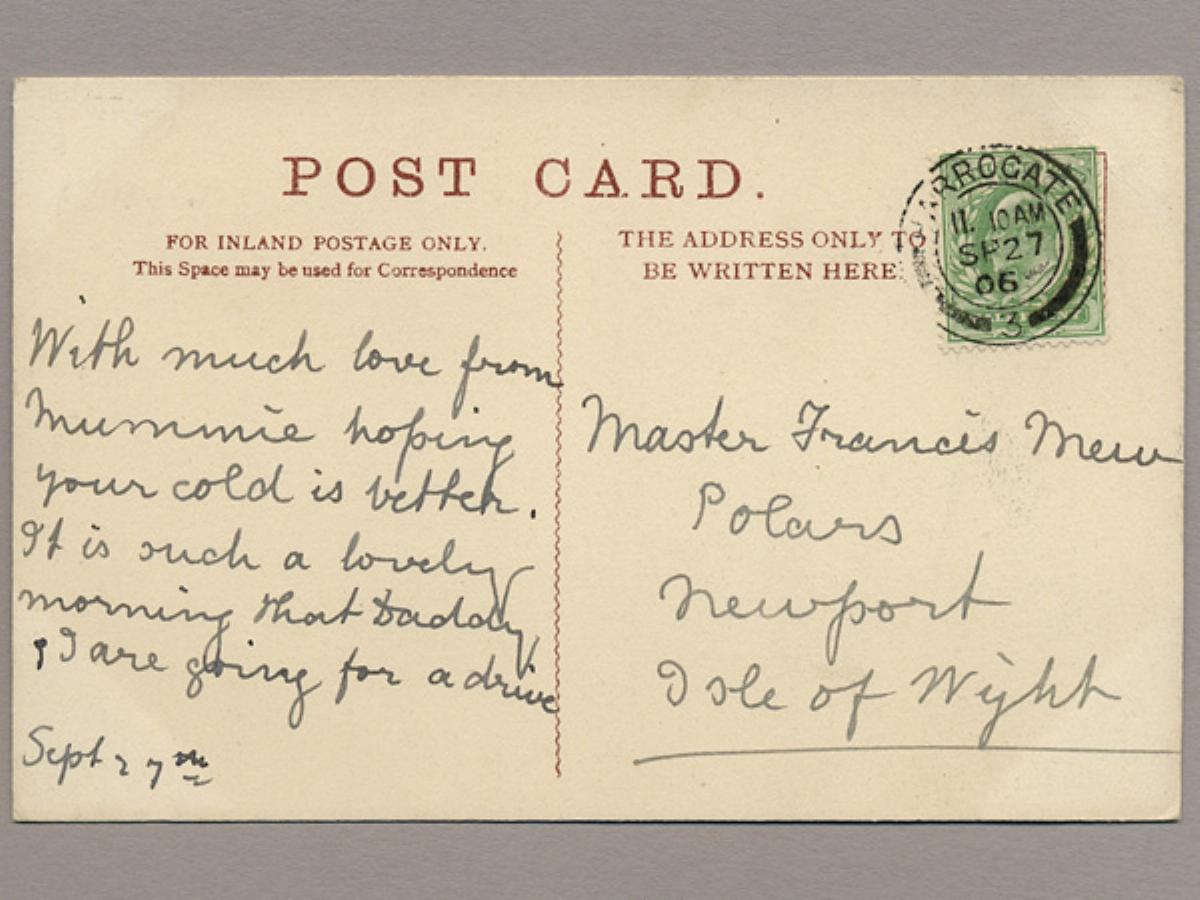 POST CARD.
FOR INLAND POSTAGE ONLY.
This Space may be used for Correspondence
THE ADDRESS ONLY TO
BE WRITTEN HERE
HARROGATE
11. 10AM
SP27
06
3
With much love from
Mummie hoping
your cold is better.
It is such a lovely
morning that Daddy
& I are going for a drive
Sept 27th
Master Francis Mew
Polars
Newport
Isle of Wight